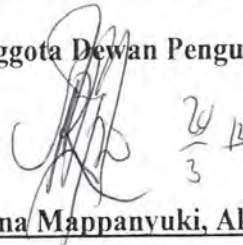 ggota Dewan Pengu
20
3
na Mappanyuki, Al